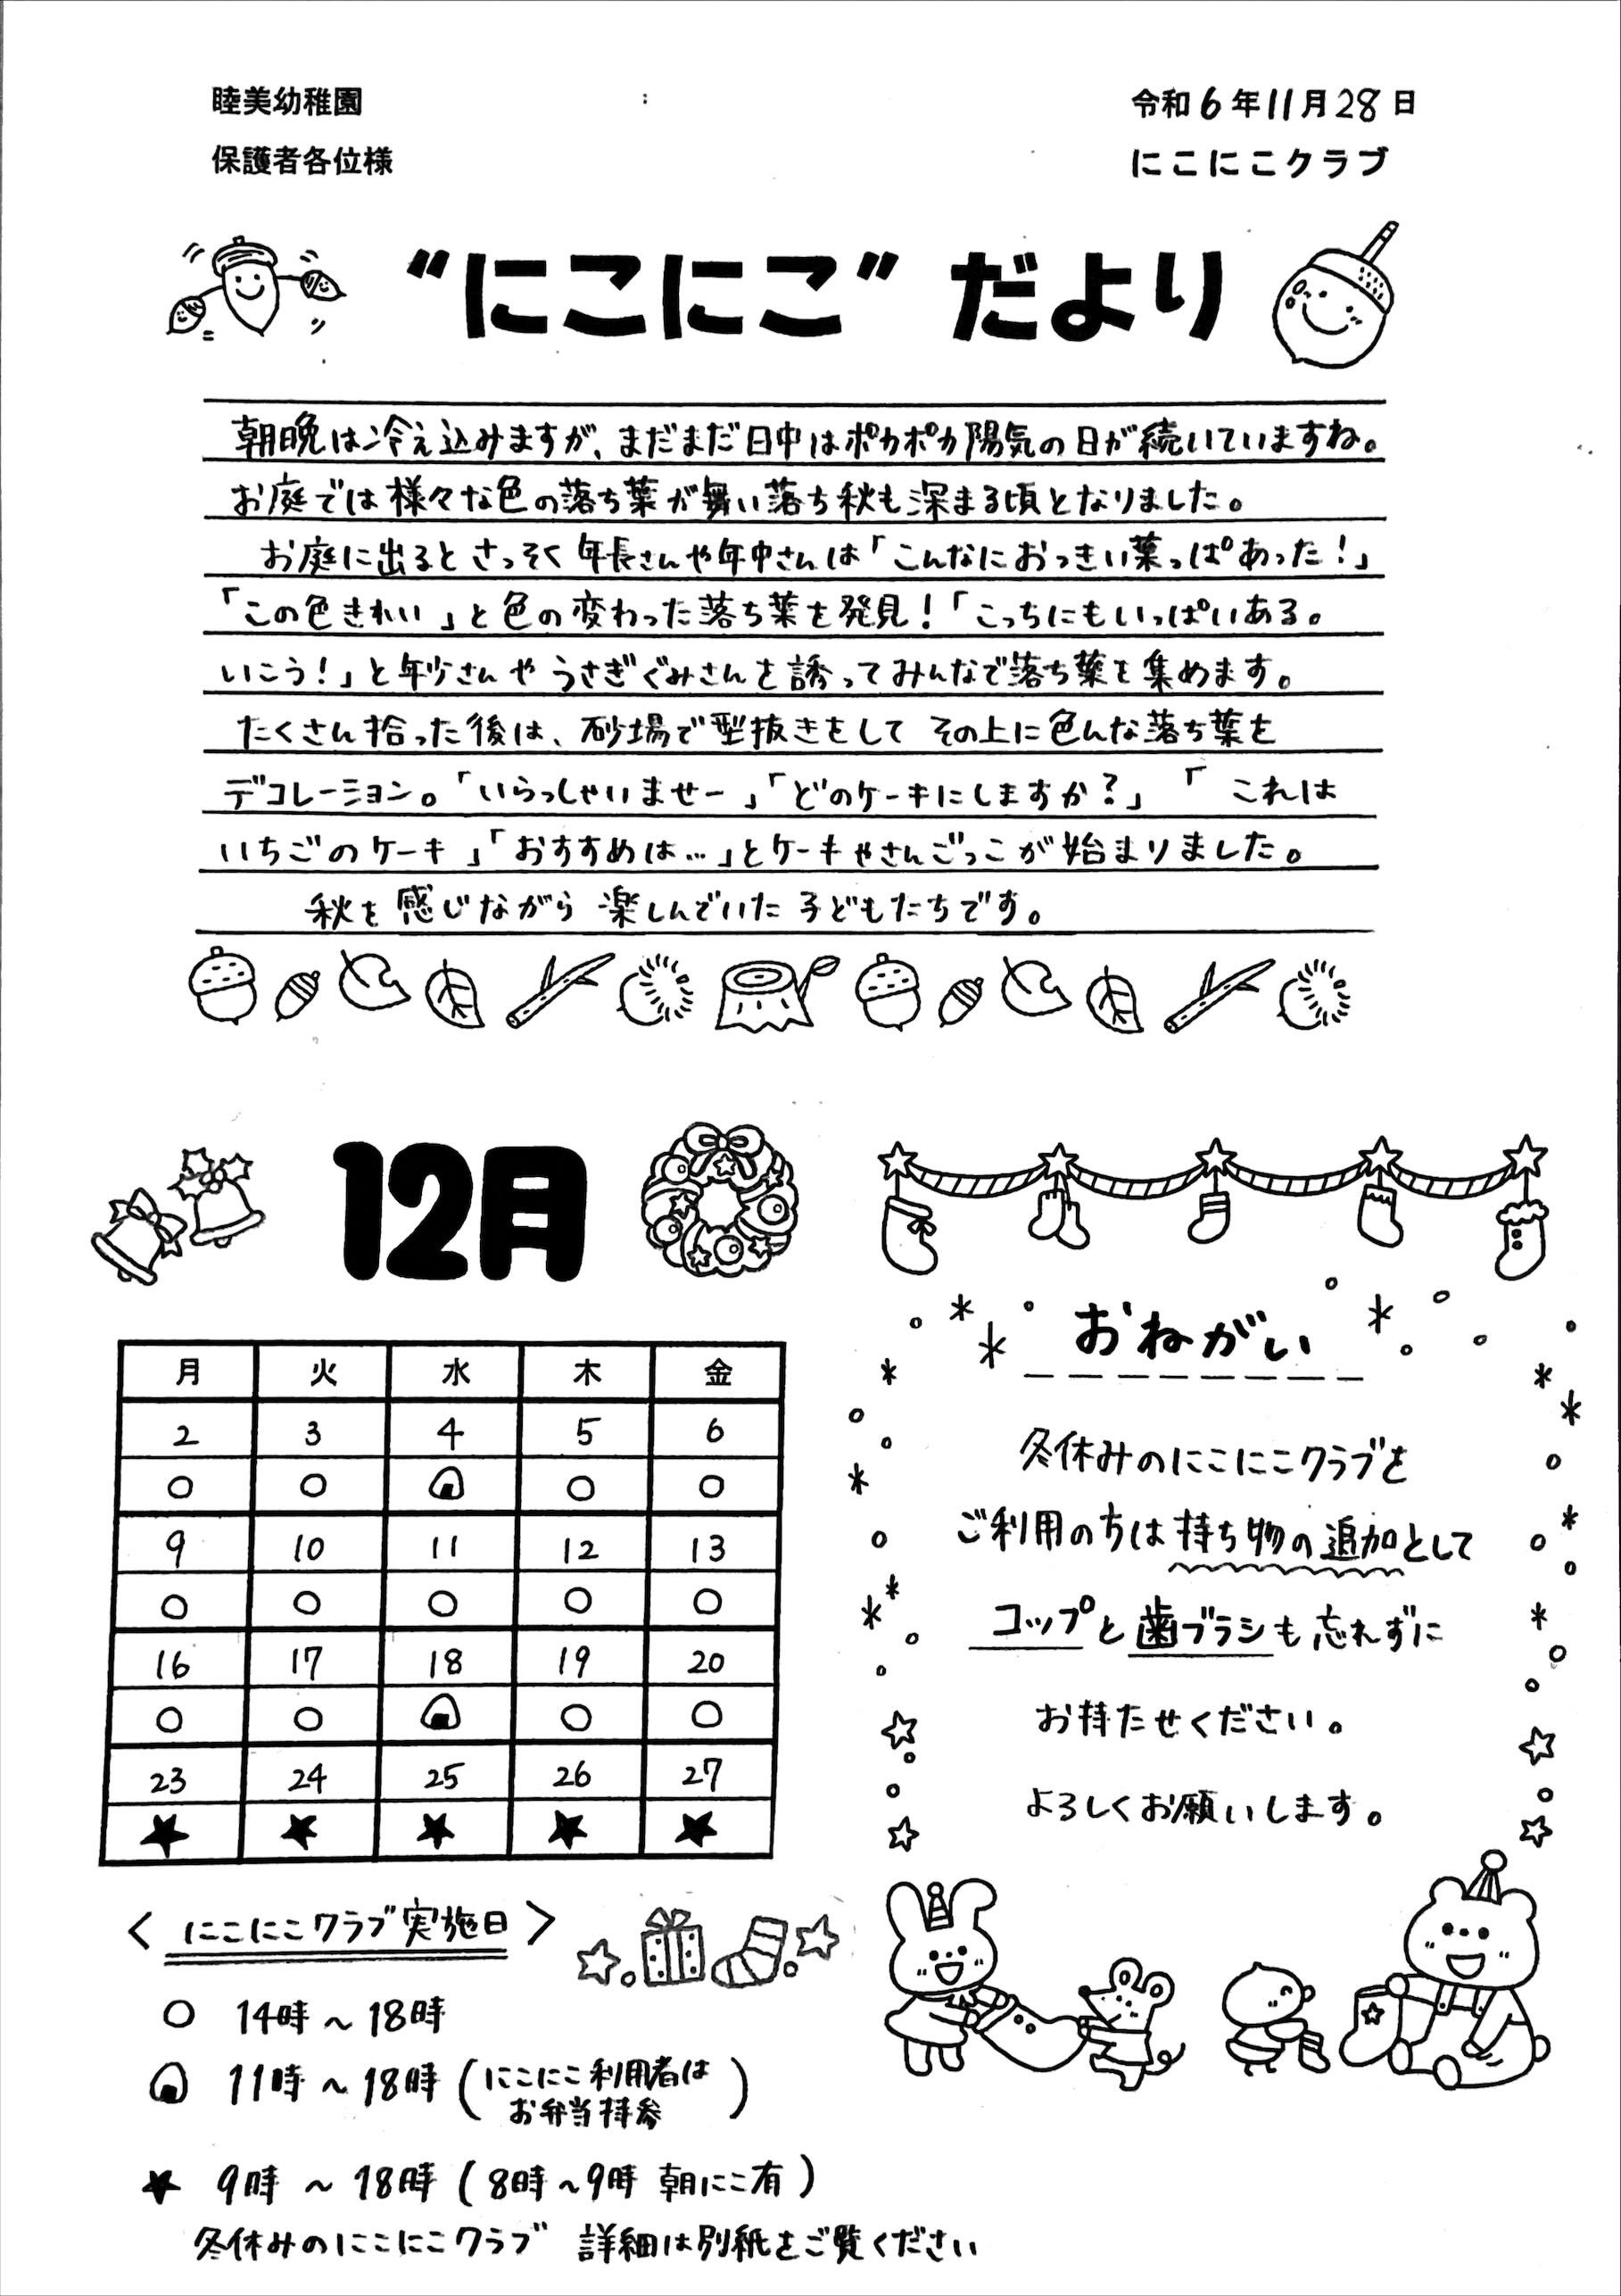 睦美幼稚園
保護者各位様
令和6年11月28日
にこにこクラブ
“にこにこ” だより
朝晩は冷え込みますが、まだまだ日中はポカポカ陽気の日が続いていますね。
お庭では様々な色の落ち葉が舞い落ち秋も深まる頃となりました。
お庭に出るとさっそく年長さんや年中さんは「こんなにおっきい葉っぱあった！」
「この色きれい」と色の変わった落ち葉を発見！「こっちにもいっぱいある。
いこう！」と年少さんやうさぎぐみさんを誘ってみんなで落ち葉を集めます。
たくさん拾った後は、砂場で型抜きをしてその上に色んな落ち葉を
デコレーション。「いらっしゃいませー」「どのケーキにしますか？」「これは
いちごのケーキ」「おすすめは…」とケーキやさんごっこが始まりました。
秋を感じながら楽しんでいた子どもたちです。
12月
月 火 水 木 金
2 3 4 5 6
○ ○ ○ ○
9 10 11 12 13
○ ○ ○ ○ ○
16 17 18 19 20
○ ○ ○ ○
23 24 25 26 27
★ ★ ★ ★ ★
＜にこにこクラブ実施日＞
○ 14時～18時
11時～18時（にこにこ利用者は
お弁当持参）
★ 9時～18時（8時～9時 朝にこ有）
冬休みのにこにこクラブ 詳細は別紙をご覧ください
おねがい
冬休みのにこにこクラブを
ご利用の方は持ち物の追加として
コップと歯ブラシも忘れずに
お持たせください。
よろしくお願いします。